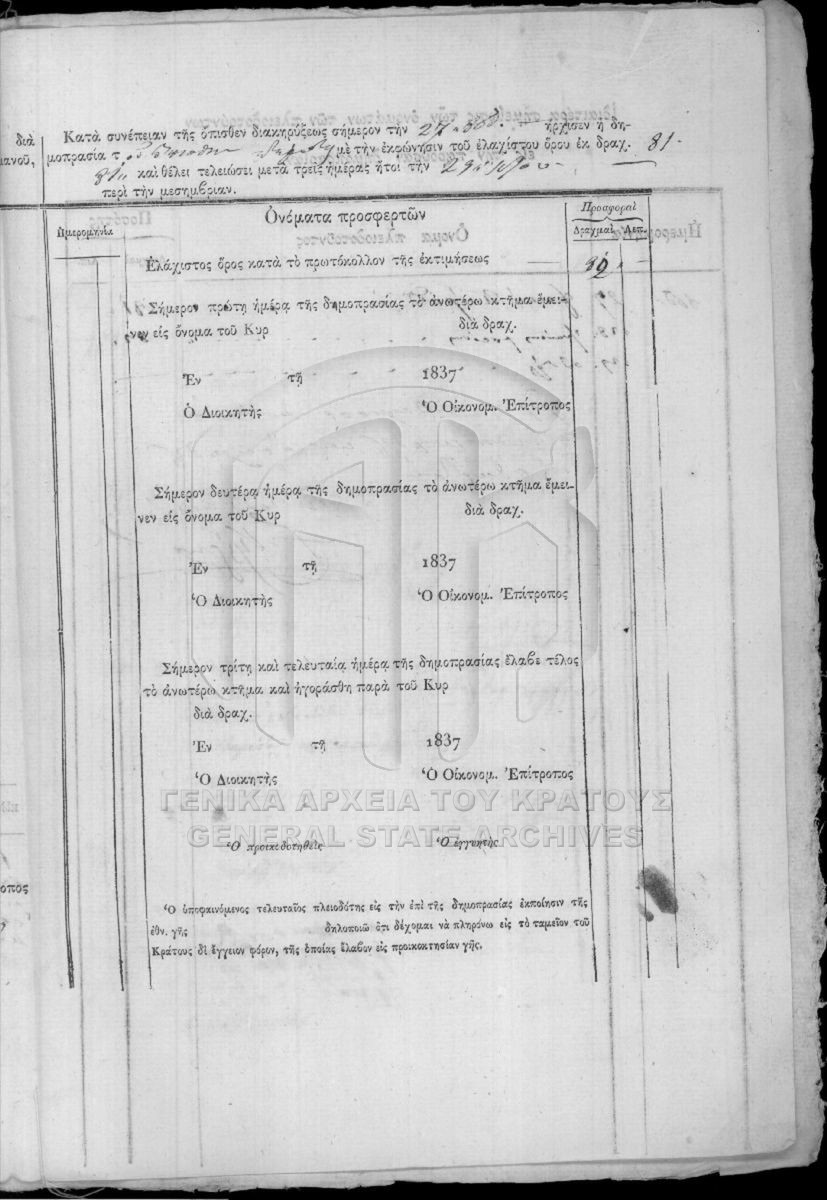 διὰ
μανοῦ,
Κατὰ συνέπειαν τῆς ὄπισθεν διακηρύξεως σήμερον τὴν 27 ἤρχισεν ἡ δη-
μοπρασία τ μὲ τὴν ἐκφώνησιν τοῦ ἐλαχίστου ὅρου ἐκ δραχ. 81
καὶ θέλει τελειώσει μετὰ τρεῖς ἡμέρας ἤτοι τὴν 29
περὶ τὴν μεσημβρίαν.
Ἡμερομηνία
Ὀνόματα προσφερτῶν
Προσφοραὶ
Δραχμαὶ Λεπ.
Ἐλάχιστος ὅρος κατὰ τὸ πρωτόκολλον τῆς ἐκτιμήσεως
Σήμερον πρώτῃ ἡμέρᾳ τῆς δημοπρασίας τὸ ἀνωτέρω κτῆμα ἔμει-
νεν εἰς ὄνομα τοῦ Κυρ διὰ δραχ.
Ἐν τῇ 1837
Ὁ Διοικητὴς Ὁ Οἰκονομ. Ἐπίτροπος
Σήμερον δευτέρᾳ ἡμέρᾳ τῆς δημοπρασίας τὸ ἀνωτέρω κτῆμα ἔμει-
νεν εἰς ὄνομα τοῦ Κυρ διὰ δραχ.
Ἐν τῇ 1837
Ὁ Διοικητὴς Ὁ Οἰκονομ. Ἐπίτροπος
Σήμερον τρίτῃ καὶ τελευταίᾳ ἡμέρᾳ τῆς δημοπρασίας ἔλαβε τέλος
τὸ ἀνωτέρω κτῆμα καὶ ἠγοράσθη παρὰ τοῦ Κυρ
διὰ δραχ.
Ἐν τῇ 1837
Ὁ Διοικητὴς Ὁ Οἰκονομ. Ἐπίτροπος
ΓΕΝΙΚΑ ΑΡΧΕΙΑ ΤΟΥ ΚΡΑΤΟΥΣ
GENERAL STATE ARCHIVES
Ὁ προικοδοτηθεὶς Ὁ ἐγγυητὴς
οπος
Ὁ ὑποφαινόμενος τελευταῖος πλειοδότης εἰς τὴν ἐπὶ τῆς δημοπρασίας ἐκποίησιν τῆς
ἐθν. γῆς δηλοποιῶ ὅτι δέχομαι νὰ πληρόνω εἰς τὸ ταμεῖον τοῦ
Κράτους δι' ἔγγειον φόρον, τῆς ὁποίας ἔλαβον εἰς προικοκτησίαν γῆς.